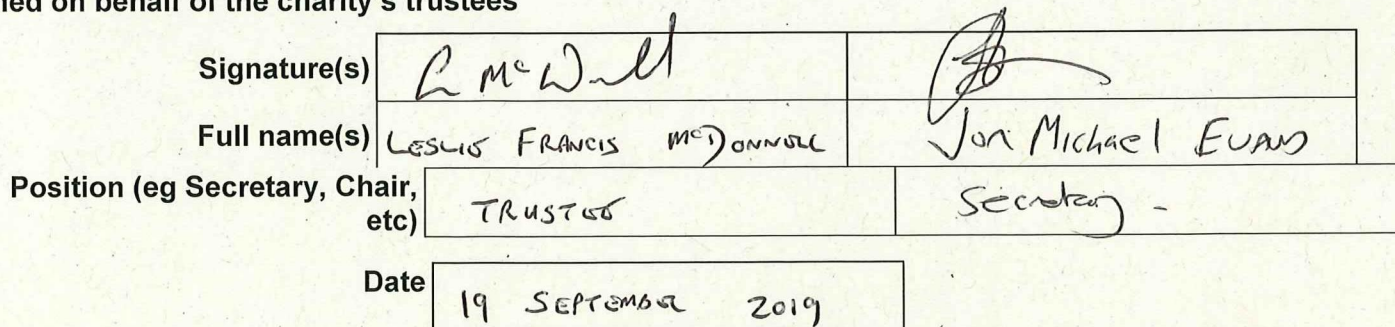 ned on behalf of the charity's trustees
Signature(s) L McD
Full name(s) LESLIE FRANCIS McDONNELL Jon Michael EVANS
Position (eg Secretary, Chair, etc) TRUSTEE Secretary -
Date 19 SEPTEMBER 2019